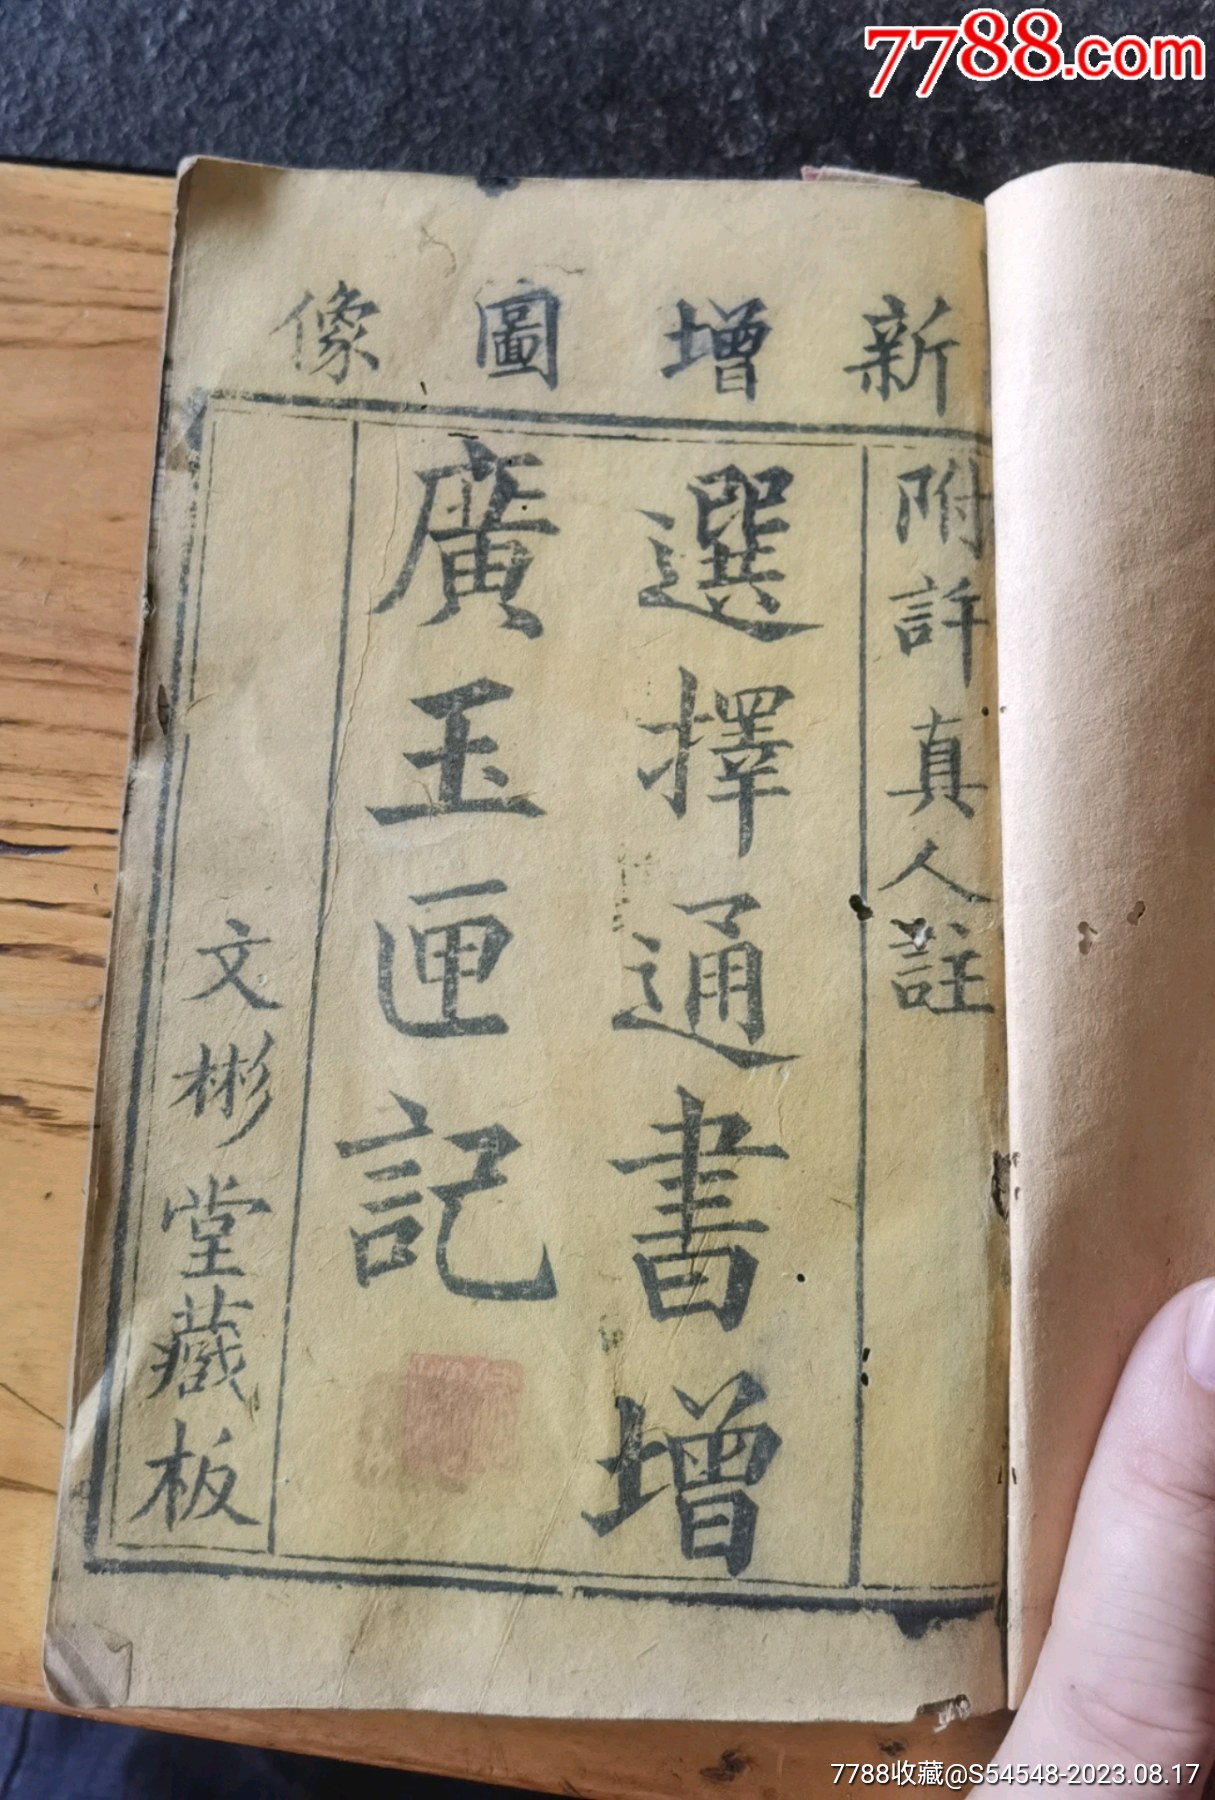 7788.com
新增圖像
附許真人註
選擇通書增
廣玉匣記
文彬堂藏板
7788收藏@S54548-2023.08.17